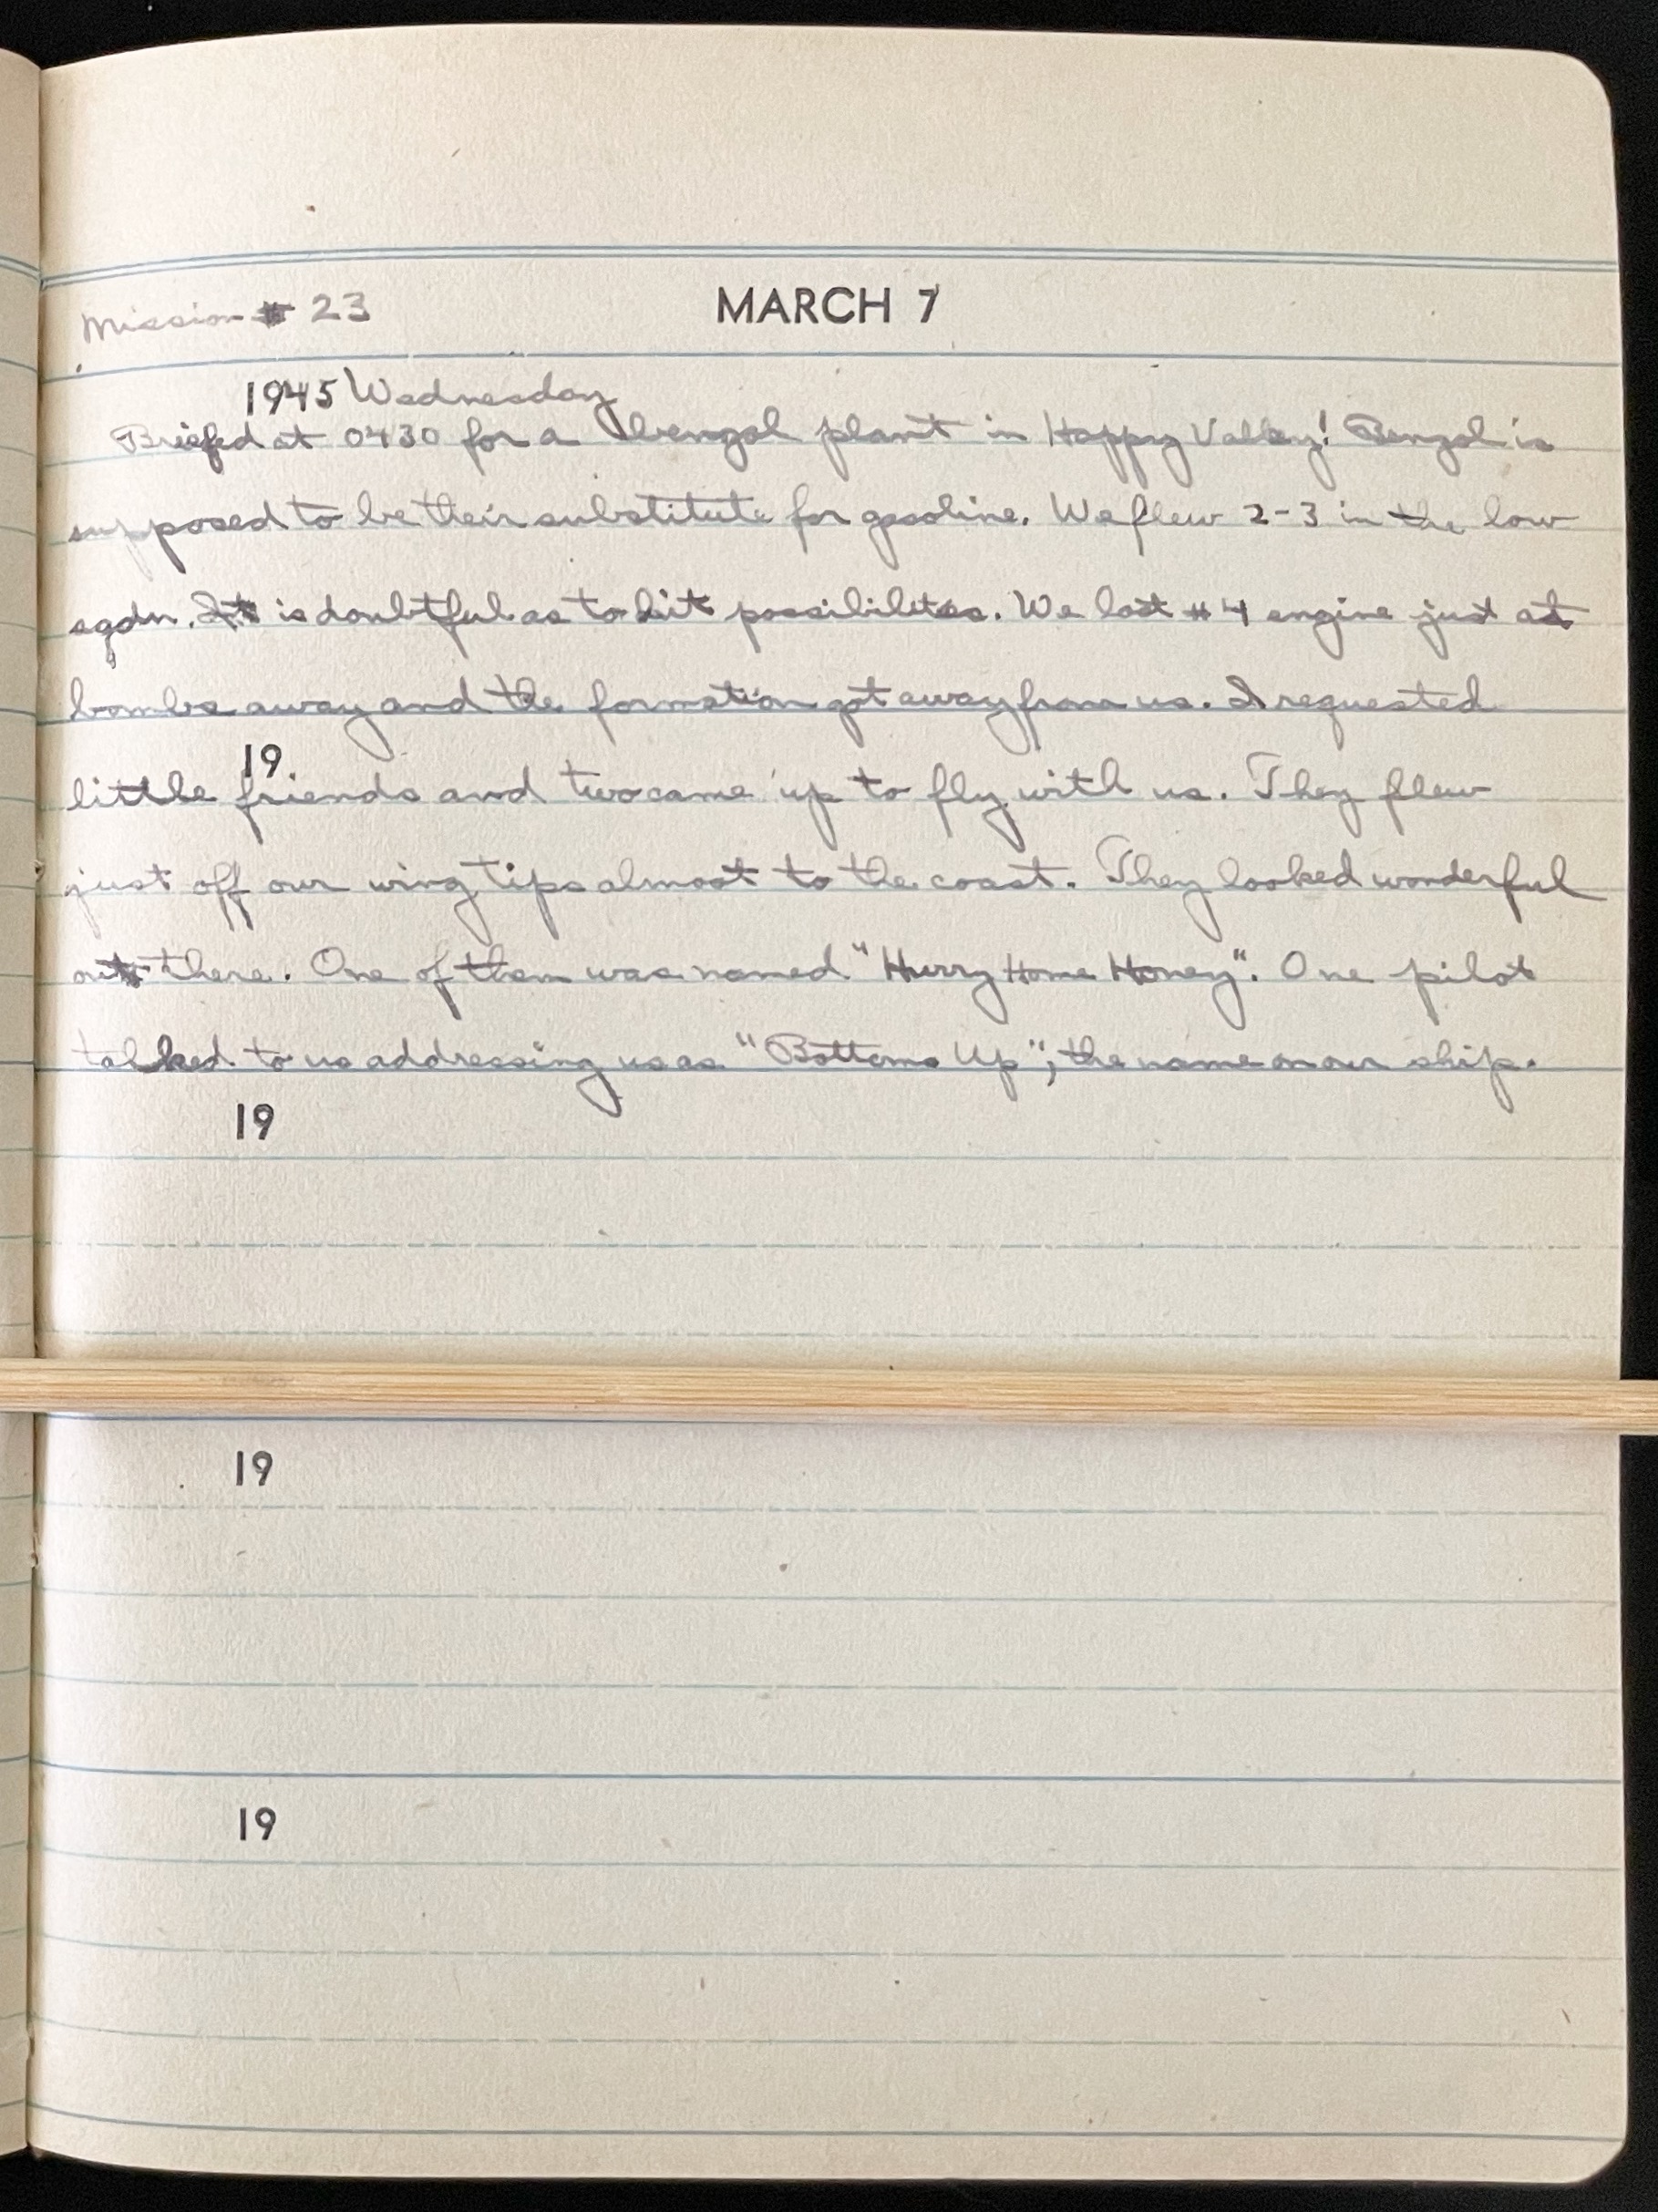 Mission # 23
MARCH 7
1945 Wednesday
Briefed at 0430 for a bengol plant in Happy Valley! Bengol is
supposed to be their substitute for gasoline. We flew 2-3 in the low
sqdn. It is doubtful as to hit possibilites. We lost #4 engine just at
bombs away and the formation got away from us. I requested
19
little friends and two came up to fly with us. They flew
just off our wing tips almost to the coast. They looked wonderful
out there. One of them was named "Hurry Home Honey". One pilot
talked to us addressing us as "Bottoms Up", the name on our ship.
19
19
19